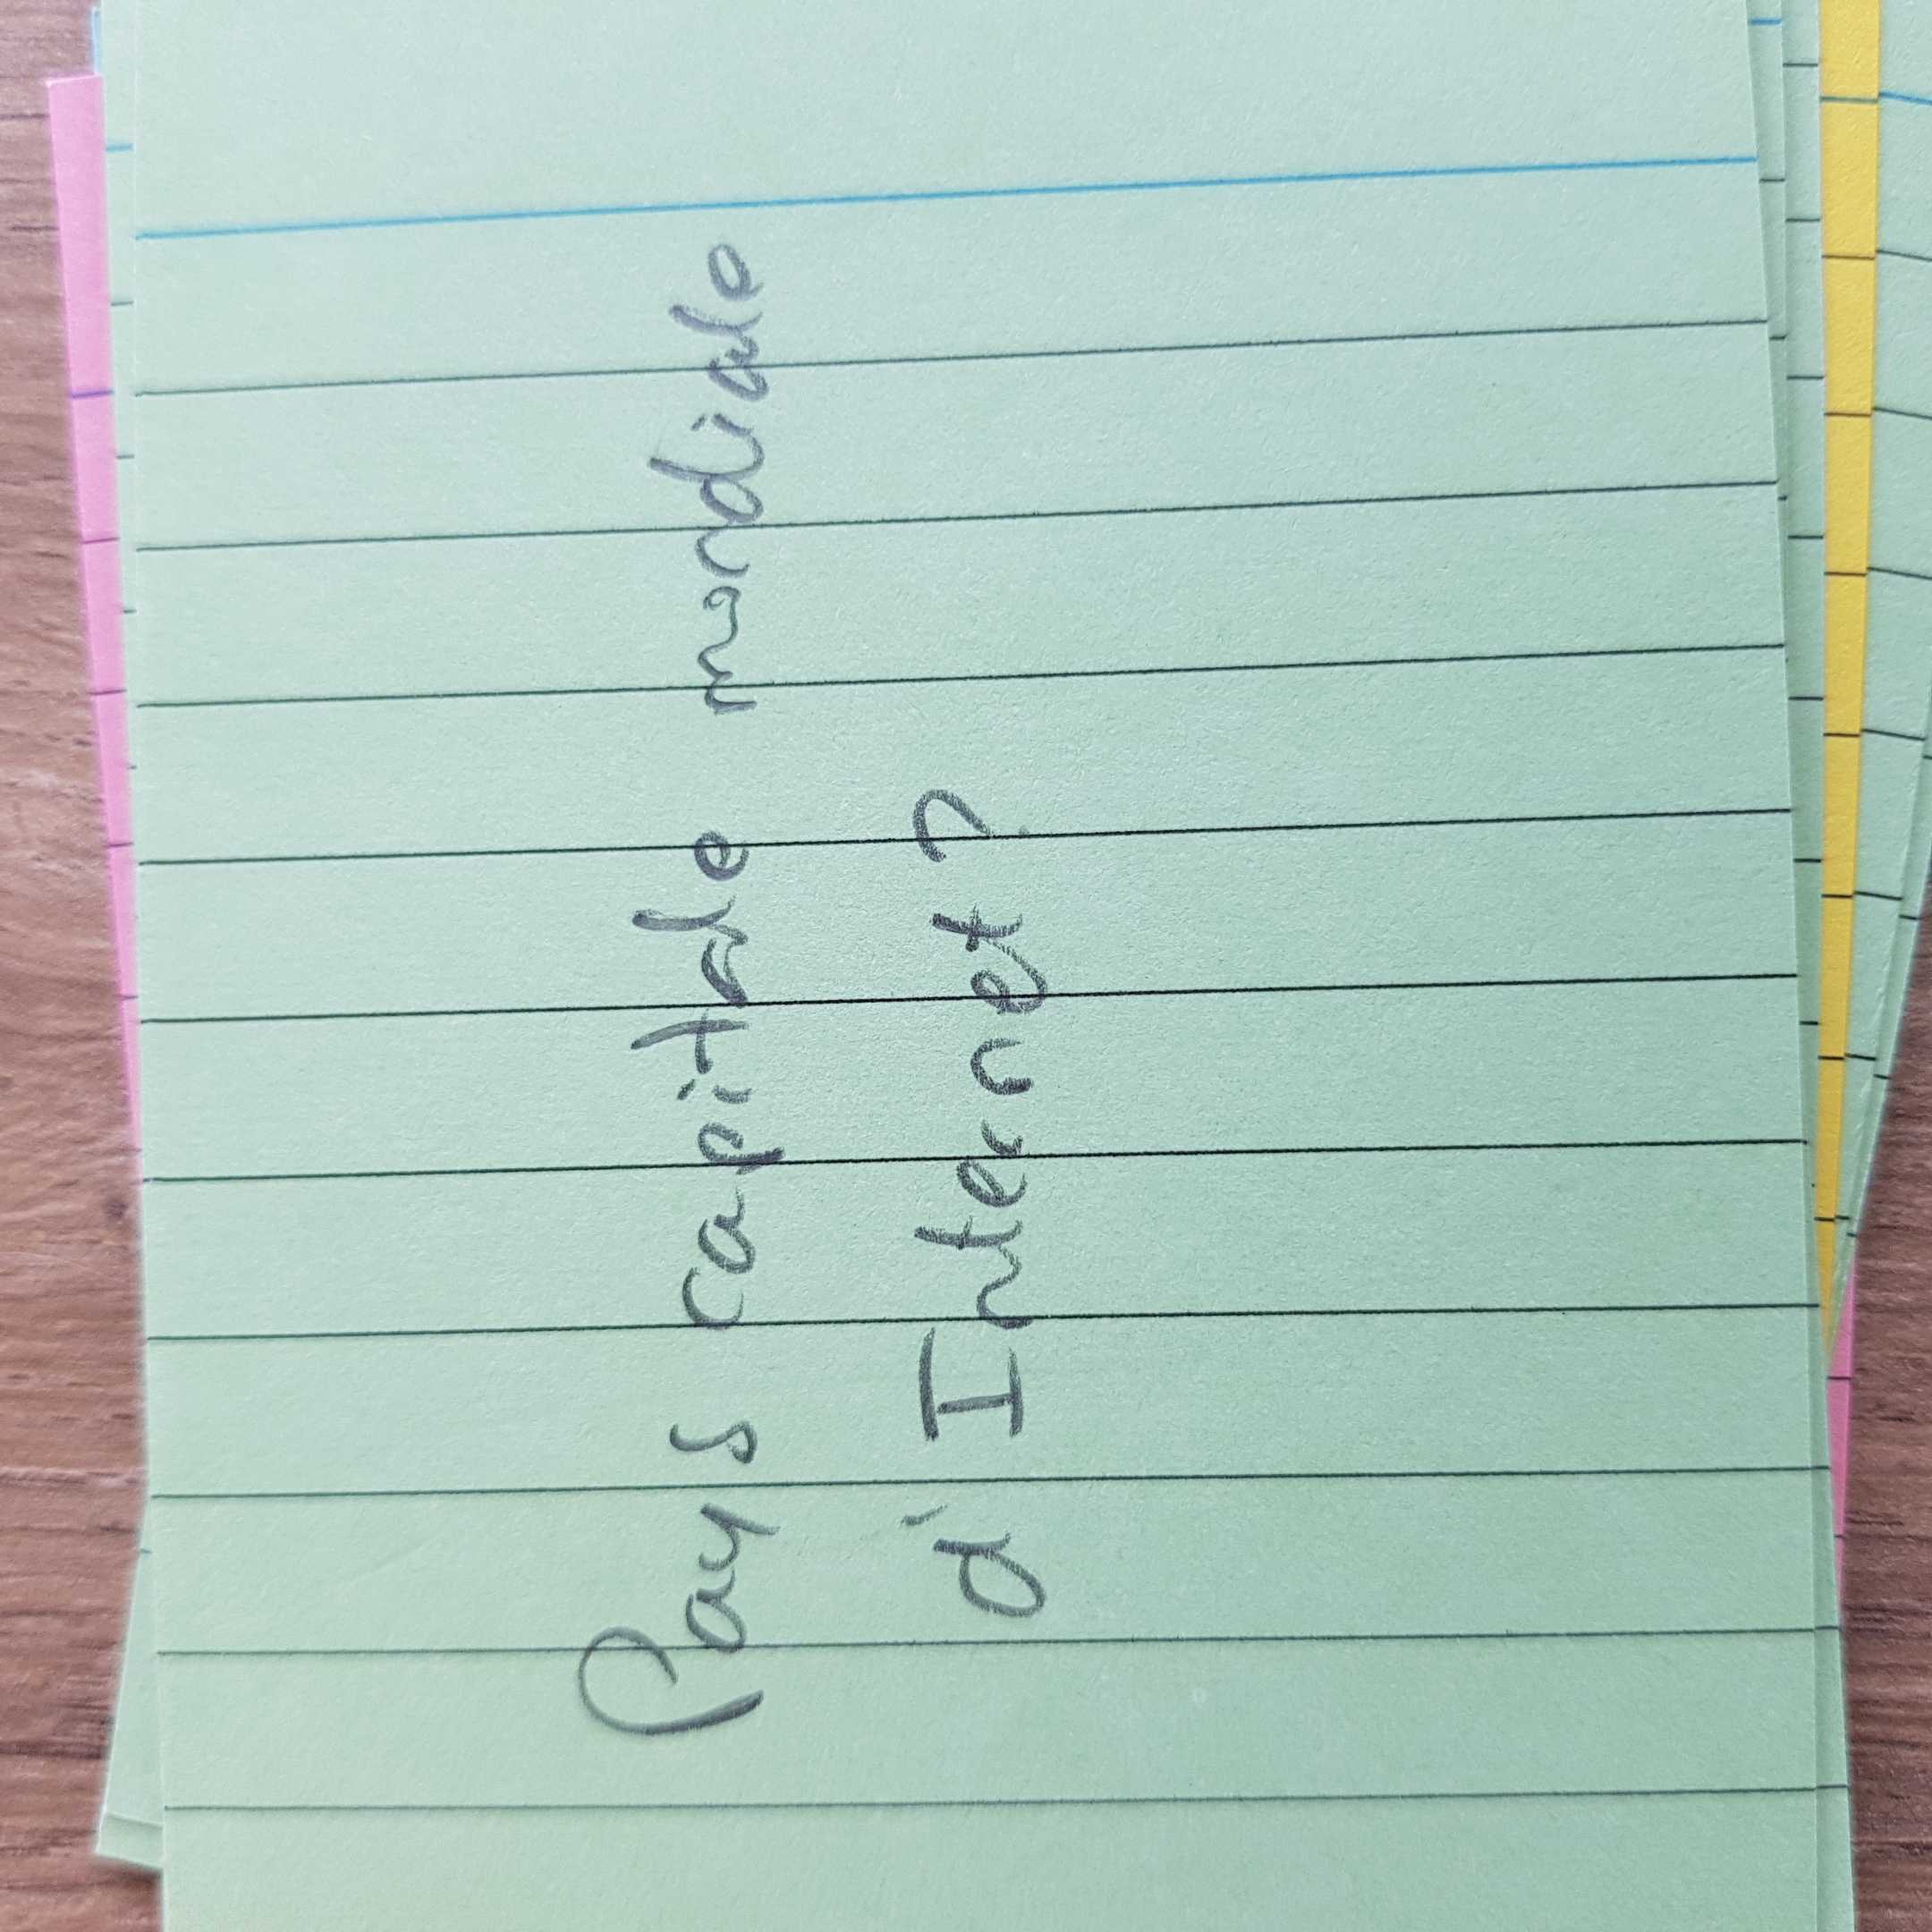 Pays capitale mondiale
d'Internet ?